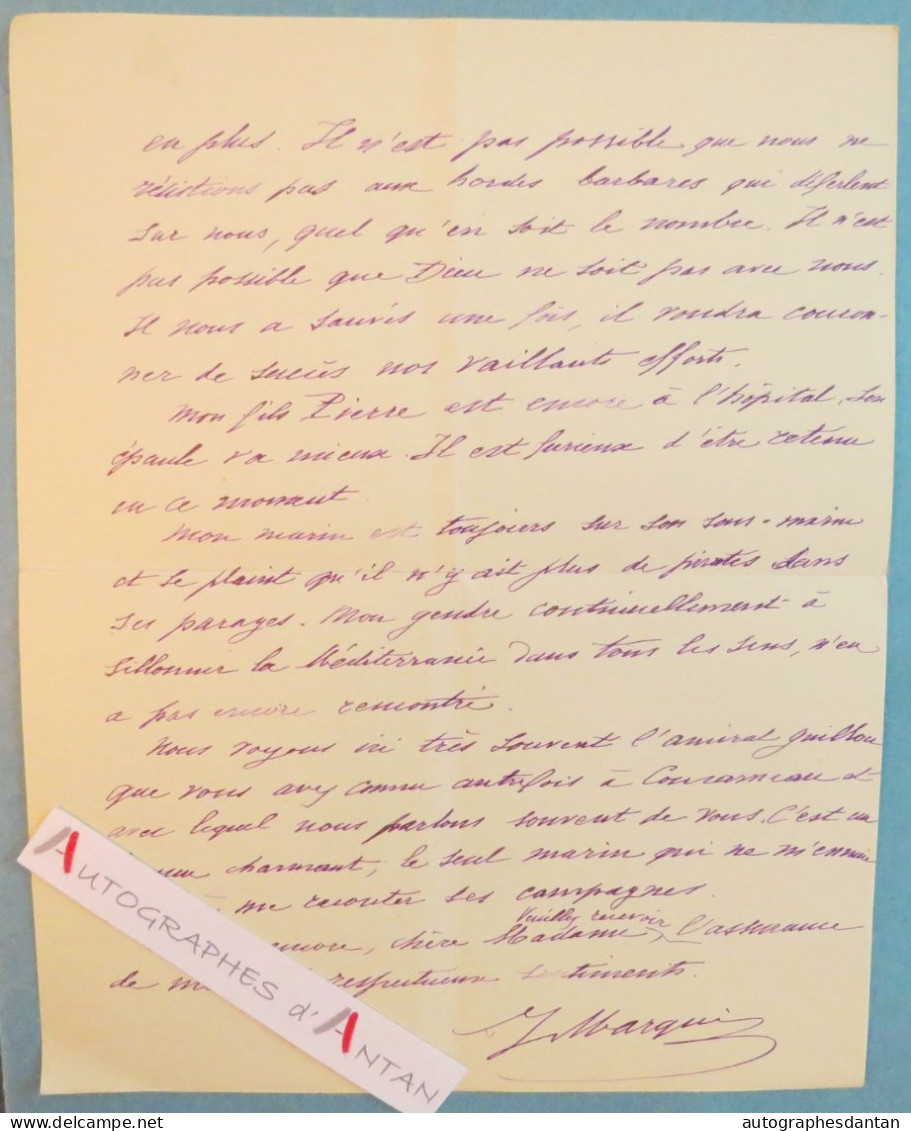 en plus. Il n'est pas possible que nous ne
résistions pas aux hordes barbares qui déferlent
sur nous, quel qu'en soit le nombre. Il n'est
pas possible que Dieu ne soit pas avec nous.
Il nous a sauvés une fois, il voudra couron-
ner de succès nos vaillants efforts.
Mon fils Pierre est encore à l'hôpital, son
épaule va mieux. Il est furieux d'être retenu
en ce moment.
Mon marin est toujours sur son sous-marin
et se plaint qu'il n'y ait plus de pirates dans
ses parages. Mon gendre continuellement à
sillonner la Méditerranée dans tous les sens, n'en
a pas encore rencontré.
Nous voyons ici très souvent l'amiral Guillou
que vous avez connu autrefois à Concarneau et
avec lequel nous parlons souvent de vous. C'est un
charmant, le seul marin qui ne m'ennuie
me raconter ses campagnes.
Veuillez recevoir
encore, chère Madame, l'assurance
de respectueux sentiments.
J Marquis
AUTOGRAPHES d'ANTAN
delcampe.net
autographesdantan